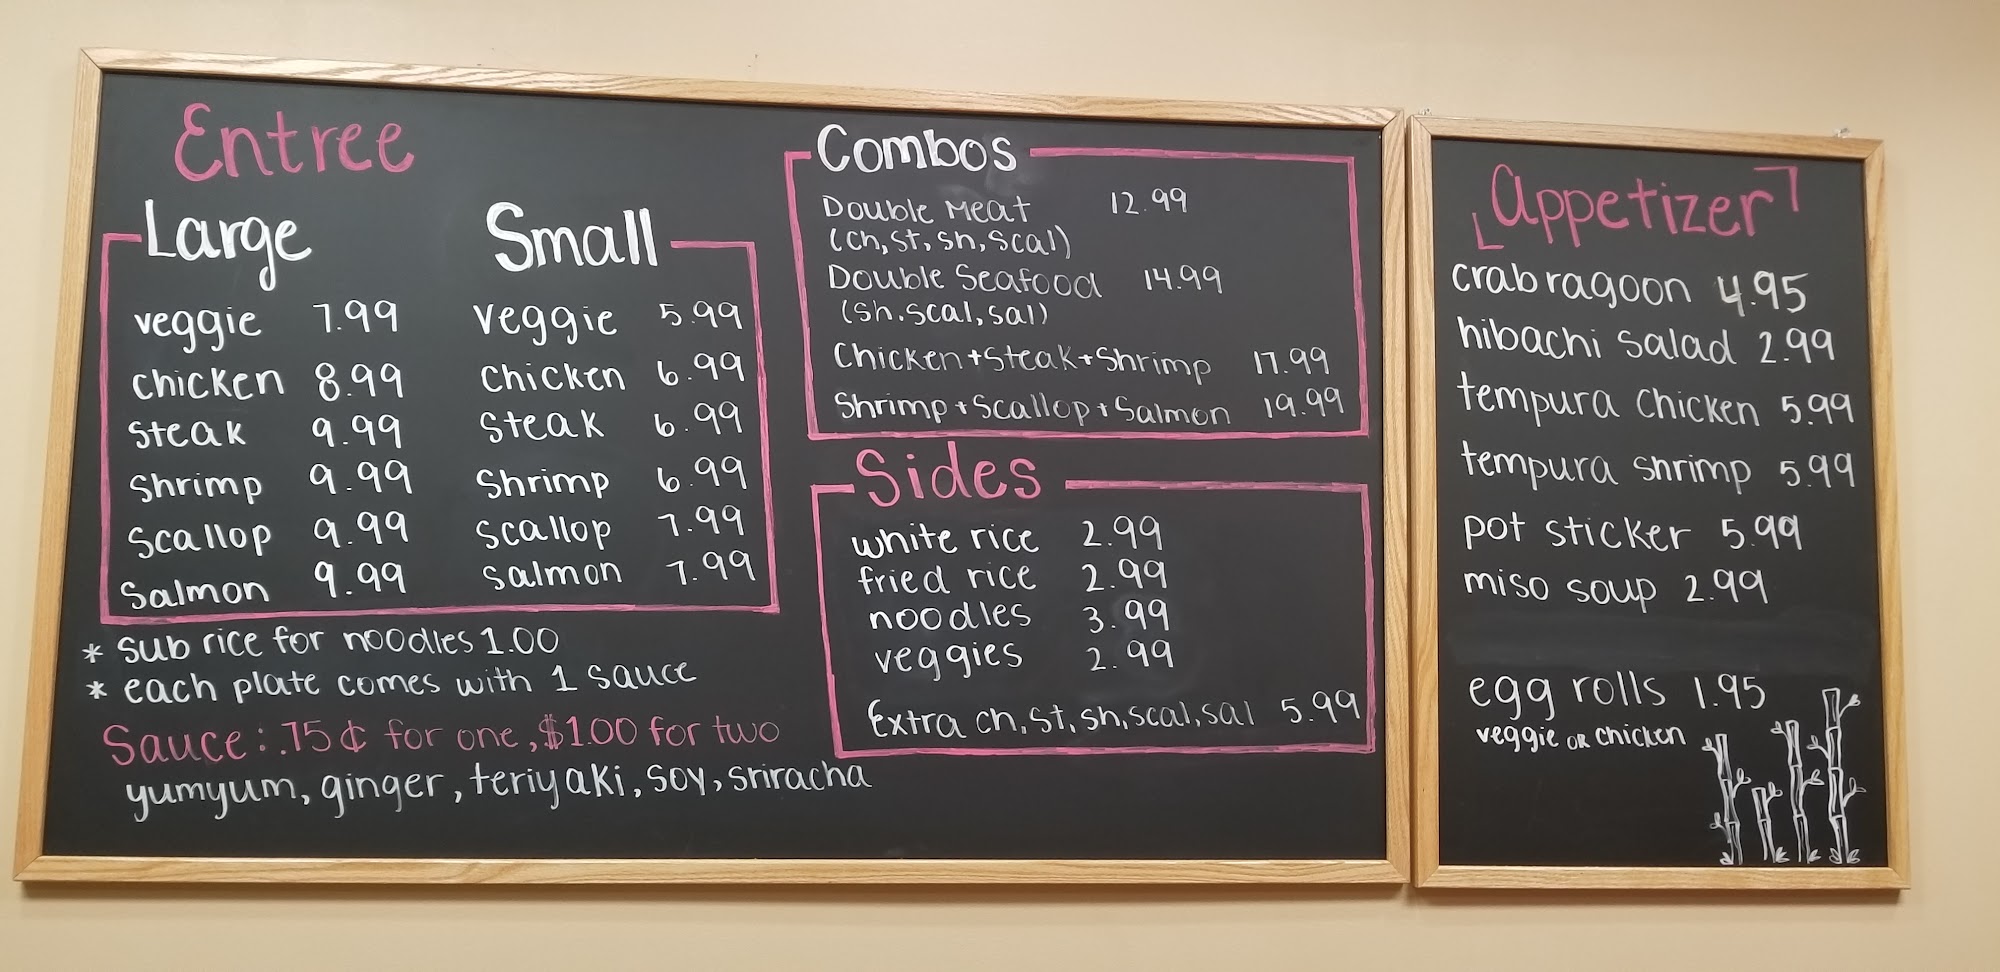 Entree
Large Small
veggie 7.99 veggie 5.99
chicken 8.99 chicken 6.99
steak 9.99 steak 6.99
shrimp 9.99 shrimp 6.99
scallop 9.99 scallop 7.99
salmon 9.99 salmon 7.99
* sub rice for noodles 1.00
* each plate comes with 1 sauce
Sauce: .75¢ for one, $1.00 for two
yumyum, ginger, teriyaki, soy, sriracha
Combos
Double Meat 12.99
(ch, st, sh, scal)
Double Seafood 14.99
(sh. scal, sal)
Chicken + Steak + Shrimp 17.99
Shrimp + Scallop + Salmon 19.99
Sides
white rice 2.99
fried rice 2.99
noodles 3.99
veggies 2.99
Extra ch, st, sh, scal, sal 5.99
Appetizer
crab ragoon 4.95
hibachi salad 2.99
tempura chicken 5.99
tempura shrimp 5.99
pot sticker 5.99
miso soup 2.99
egg rolls 1.95
veggie or chicken